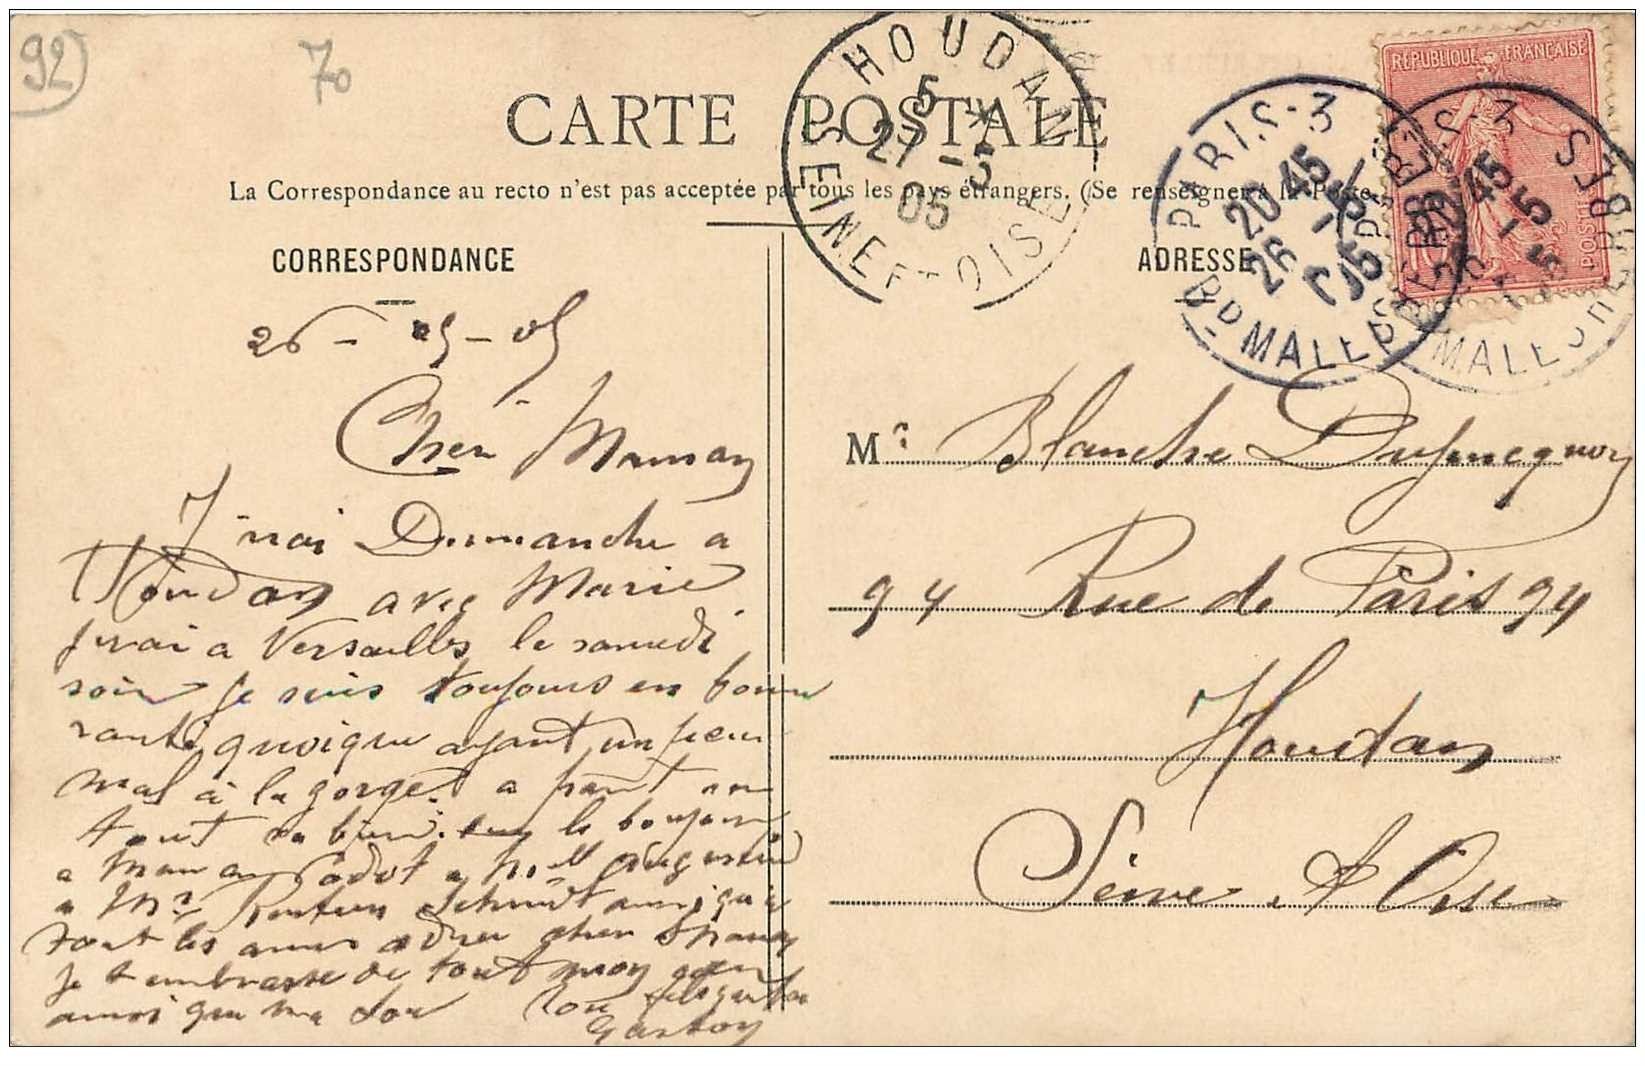 92
70
CARTE POSTALE
La Correspondance au recto n'est pas acceptée par tous les pays étrangers. (Se renseigner à la Poste
HOUDAN
5 *
27 - 5
05
SEINE ET OISE
PARIS - 3
20 45
26 - 5
05
Bd MALESHERBES
PARIS - 3
45
- 5
Bd MALESHERBES
RÉPUBLIQUE FRANÇAISE
POSTES
CORRESPONDANCE
26 - 05 - 05
Cher Maman
J'irai Dimanche a
Houdan avec Marie
j'irai a Versailles le samedi
soir je suis toujours en bonne
santé, quoique ayant un peu
mal à la gorge. a part
tout va bien. le bonjour
a maman Godot a Mell Augustine
a Mr ainsi qu'a
tout les amis cher Maman
je t'embrasse de tout mon cœur
ainsi que ma Ton fils
Gaston
ADRESSE
Me Blanche
94 Rue de Paris 94
Houdan
Seine et Oise